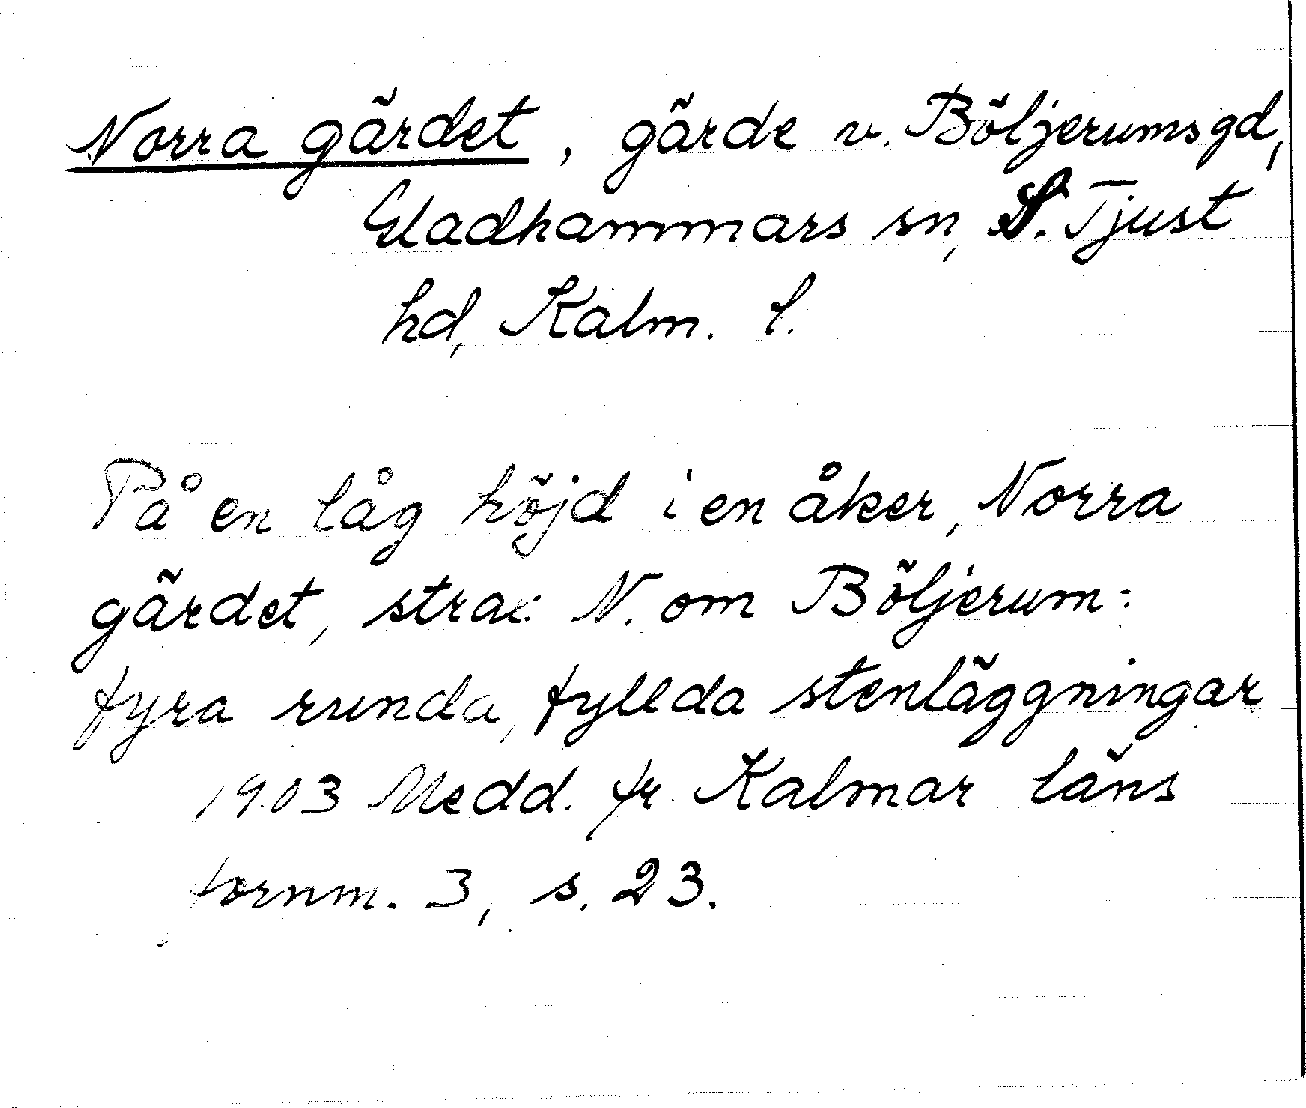 Norra gärdet, gärde v. Böljerumsgd,
Gladhammars sn, S. Tjust
hd, Kalm. l.
På en låg höjd i en åker, Norra
gärdet, strax N. om Böljerum:
fyra runda, fyllda stenläggningar
1903 Medd. fr Kalmar läns
fornm. 3, s. 23.